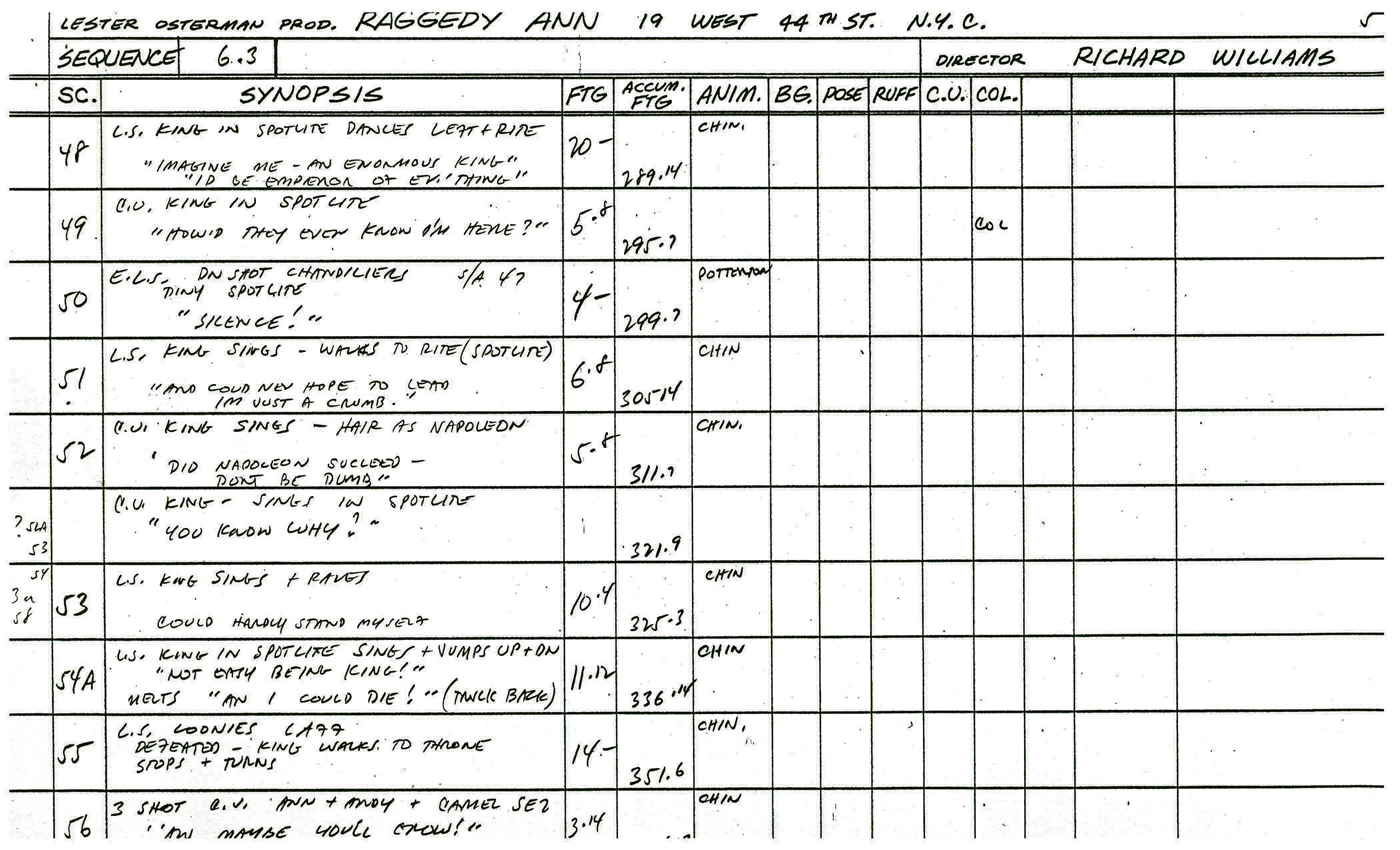 LESTER OSTERMAN PROD. RAGGEDY ANN 19 WEST 44TH ST. N.Y.C. 5
SEQUENCE 6.3 DIRECTOR RICHARD WILLIAMS
SC. SYNOPSIS FTG ACCUM. FTG ANIM. BG. POSE RUFF C.U. COL.
48 L.S. KING IN SPOTLITE DANCES LEFT + RITE 20- CHIN.
"IMAGINE ME - AN ENORMOUS KING"
"I'D BE EMPEROR OF EV'THING" 289.14
49 C.U. KING IN SPOTLITE 5.8
"HOW'D THEY EVEN KNOW I'M HERE?" 295.7 COL
50 E.L.S. DN SHOT CHANDILIERS S/A 47 4- POTTERTON
TINY SPOTLITE
"SILENCE!" 299.7
51 L.S. KING SINGS - WALKS TO RITE (SPOTLITE) 6.8 CHIN
"AND COULD NEV HOPE TO LEAD
IM JUST A CRUMB." 305.14
52 C.U. KING SINGS - HAIR AS NAPOLEON 5.8 CHIN.
' DID NAPOLEON SUCCEED -
DONT BE DUMB" 311.7
C.U. KING - SINGS IN SPOTLITE
"YOU KNOW WHY?"
? 52A
53 321.9
54
53 L.S. KING SINGS + RAVES 10.4 CHIN
58
COULD HARDLY STAND MYSELF 325.3
54A L.S. KING IN SPOTLITE SINGS + JUMPS UP + DN 11.12 CHIN
"NOT EASY BEING KING!"
MELTS "AN I COULD DIE!" (TRUCK BACK) 336.14
55 L.S. LOONIES LAFF 14.- CHIN.
DEFEATED - KING WALKS TO THRONE
STOPS + TURNS 351.6
56 3 SHOT C.U. ANN + ANDY + CAMEL SEZ 3.14 CHIN
"AW MAYBE YOU'LL GROW!"